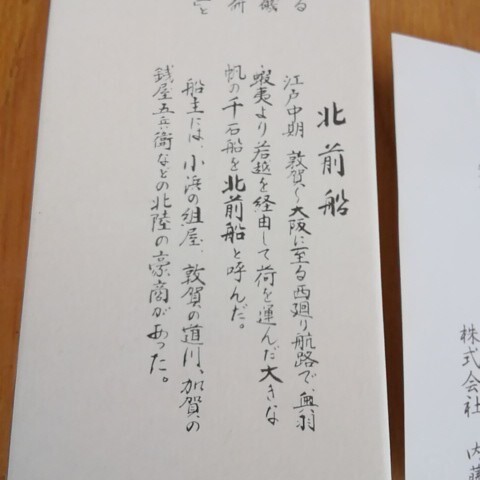 北前船
江戸中期 敦賀〜大阪に至る西廻り航路で、奥羽
蝦夷より若越を経由して荷を運んだ大きな
帆の千石船を北前船と呼んだ。
船主には、小浜の組屋、敦賀の道川、加賀の
銭屋五兵衛などの北陸の豪商があった。
株式会社 内藤